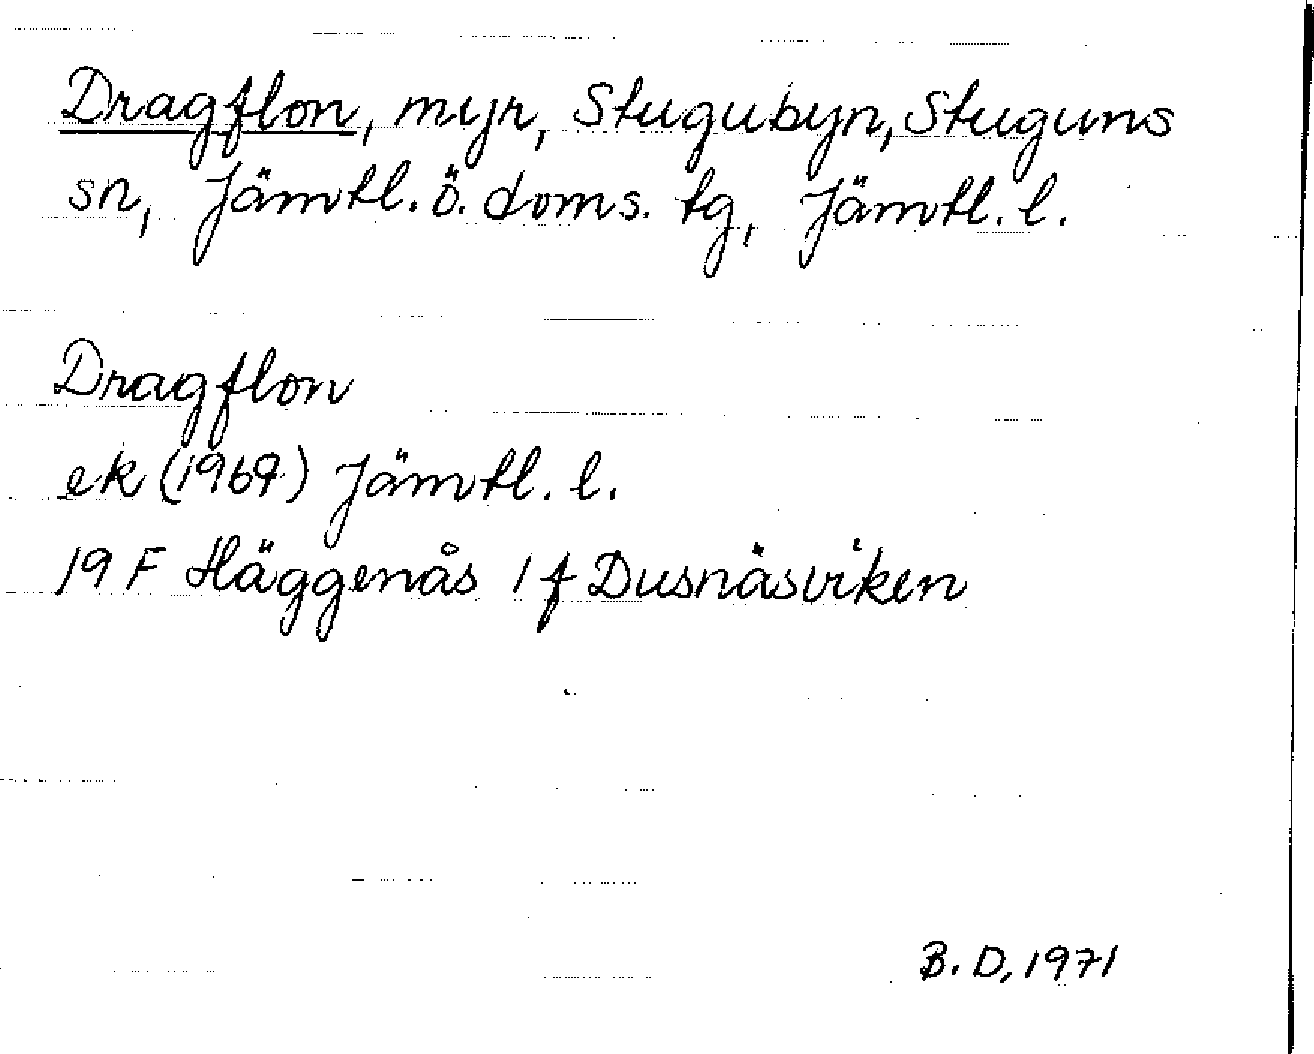 Dragflon, myr, Stugubyn, Stuguns
sn, Jämtl. ö. doms. tg, Jämtl. l.
Dragflon
ek (1967) Jämtl. l.
19 F Häggenås 1 f Dusnäsviken
B. D, 1971